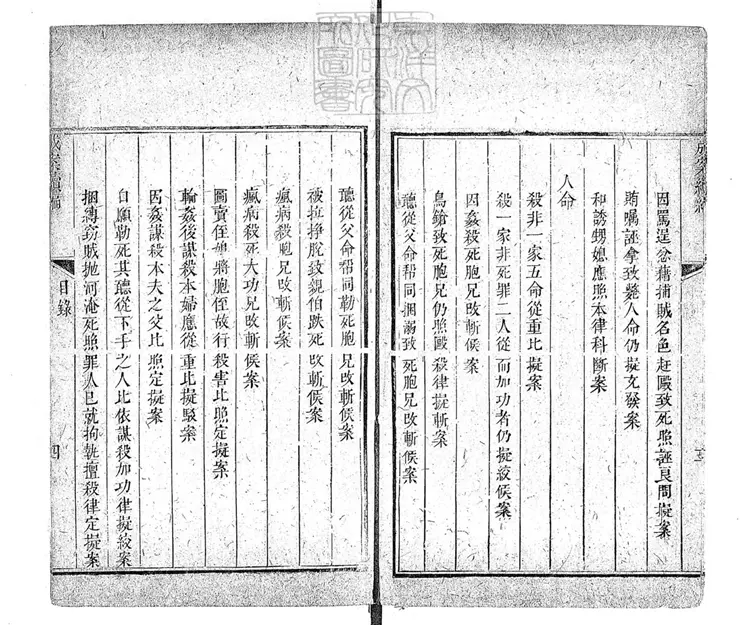 因罵逞忿藉捕賊名色赶毆致死照誣良問擬案
賄囑誣拿致斃人命仍擬文發案
和誘甥媳應照本律科斷案
人命
殺非一家五命從重比擬案
殺一家非死罪二人從而加功者仍擬絞候案
因姦殺死胞兄改斬候案
鳥鎗致死胞兄仍照毆殺律擬斬案
聽從父命帮同捆溺致死胞兄改斬候案
聽從父命帮同勒死胞兄改斬候案
被拉挣脫致親伯跌死改斬候案
瘋病殺胞兄改斬候案
瘋病殺死大功兄改候案
圖賣侄媳將胞侄故行殺害比照定擬案
輪姦後謀殺本婦應從重比擬駁案
因姦謀殺本夫之父比照定擬案
自願勒死其聽從下手之人比依謀殺加功律擬絞案
捆縛竊賊拋河淹死照罪人已就拘執擅殺律定擬案
目錄
四